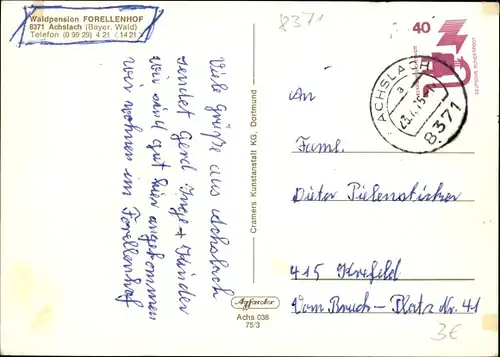 Waldpension FORELLENHOF
8371 Achslach (Bayer. Wald)
Telefon (0 99 29) 4 21 (14 21)
8371
40
DEUTSCHE BUNDESPOST
ACHSLACH
a
8371
Viele Grüße aus Achslach
sendet Gerd Inge + Kinder
wir sind gut hier angekommen
wir wohnen im Forellenhof
Cramers Kunstanstalt KG, Dortmund
Agfacolor
Achs 038
75/3
An
Faml.
Dieter Pielensticker
415 Krefeld
Vom Bruch - Platz Nr. 41
3€